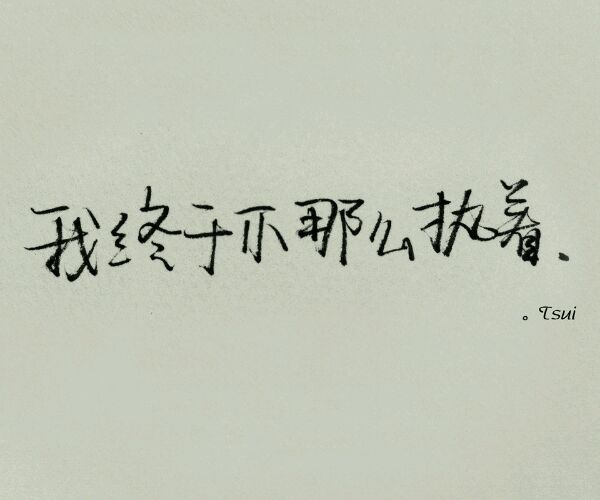 我终于不那么执着.
。Tsui